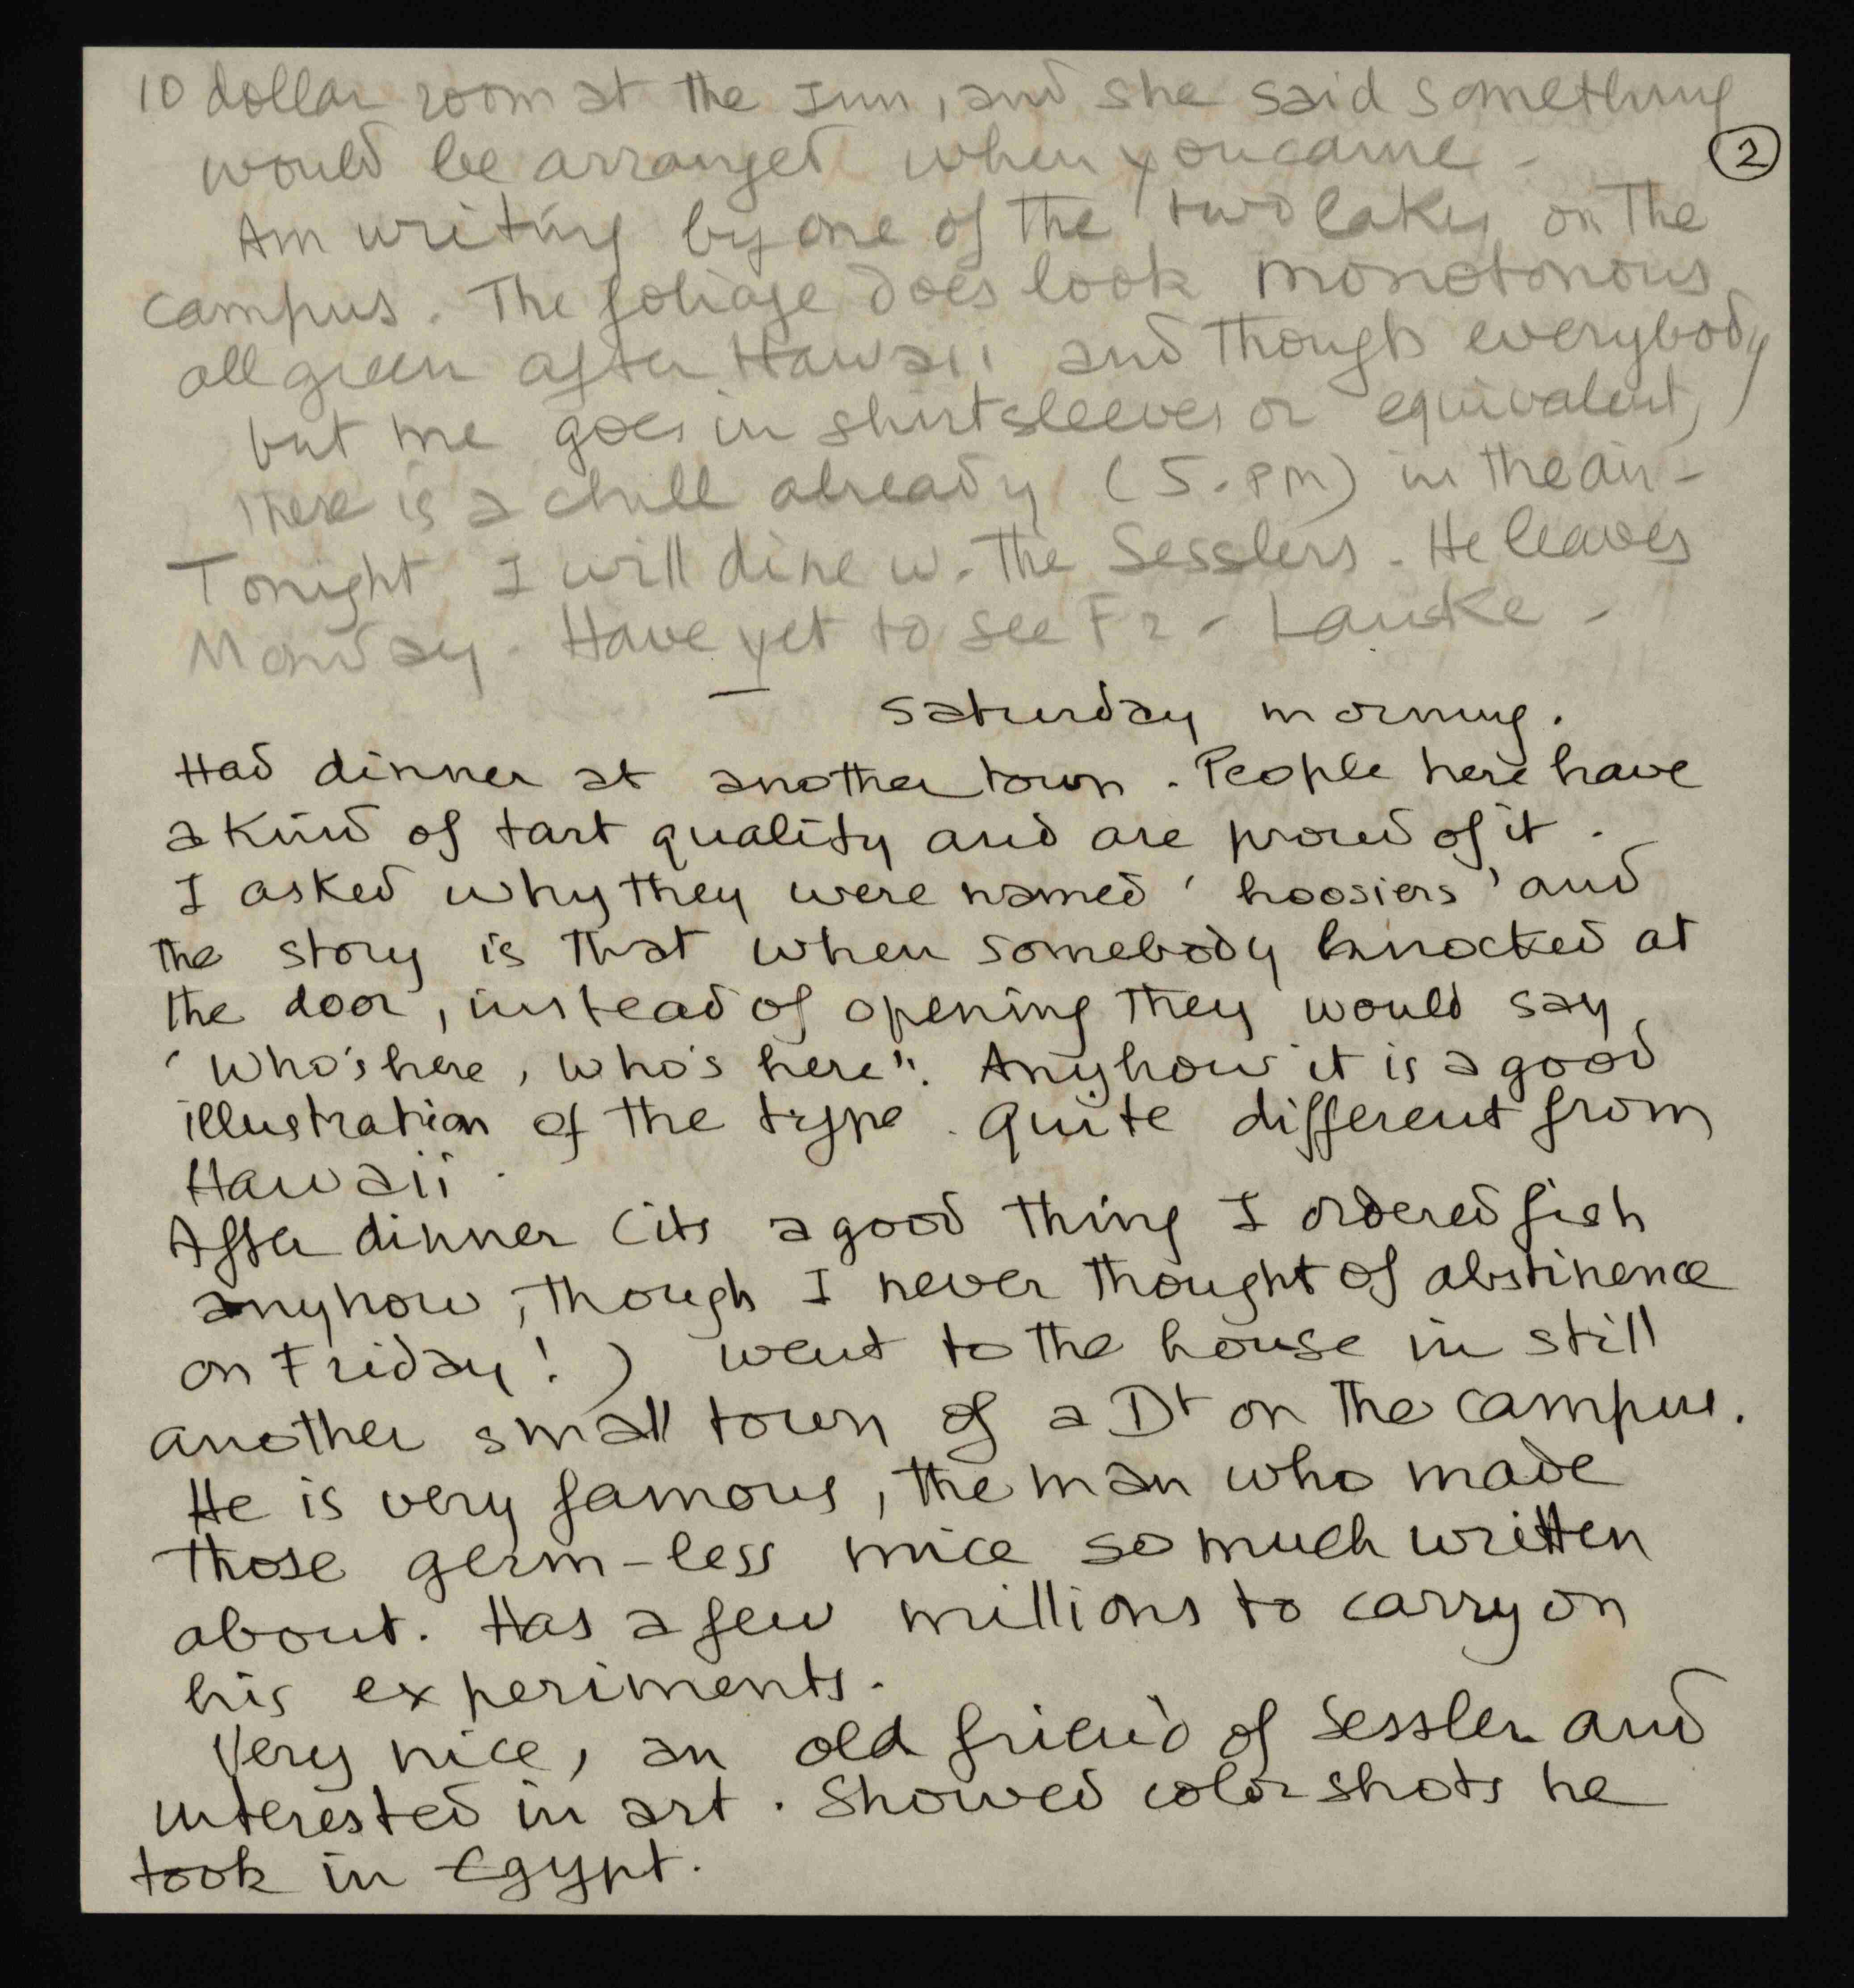 10 dollar room at the Inn, and she said something
would be arranged when you came -
②
Am writing by one of the two lakes on the
campus. The foliage does look monotonous
all green after Hawaii and though everybody
but me goes in shirtsleeves or equivalent,
there is a chill already (5. PM) in the air -
Tonight I will dine w. the Sesslers - He leaves
Monday. Have yet to see Fr - Lauke -
Saturday morning.
Had dinner at another town. People here have
a kind of tart quality and are proud of it.
I asked why they were named 'hoosiers' and
the story is that when somebody knocked at
the door, instead of opening they would say
'Who's here, who's here". Anyhow it is a good
illustration of the type. Quite different from
Hawaii.
After dinner (its a good thing I ordered fish
anyhow, though I never thought of abstinence
on Friday!) went to the house in still
another small town of a Dr on the campus.
He is very famous, the man who made
those germ-less mice so much written
about. Has a few millions to carry on
his experiments.
Very nice, an old friend of Sessler and
interested in art. Showed color shots he
took in Egypt.